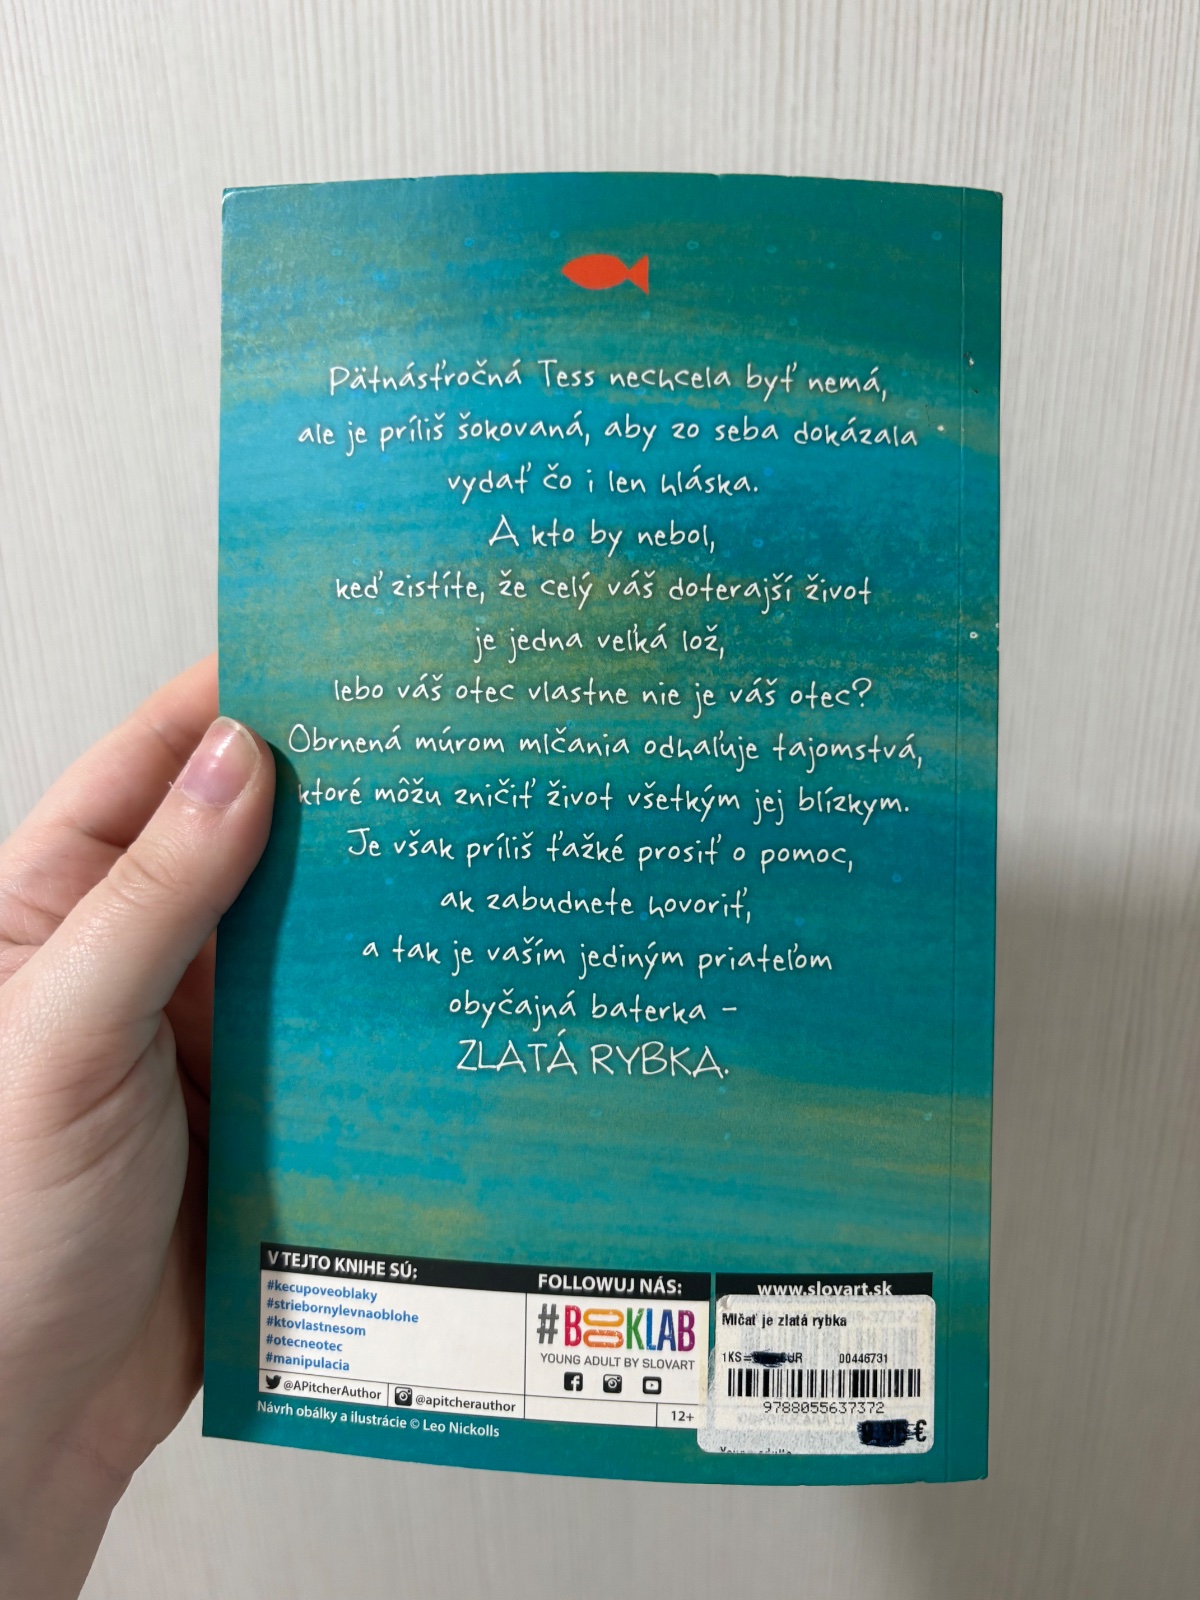 Pätnásťročná Tess nechcela byť nemá,
ale je príliš šokovaná, aby zo seba dokázala
vydať čo i len hláska.
A kto by nebol,
keď zistíte, že celý váš doterajší život
je jedna veľká lož,
lebo váš otec vlastne nie je váš otec?
Obrnená múrom mlčania odhaľuje tajomstvá,
ktoré môžu zničiť život všetkým jej blízkym.
Je však príliš ťažké prosiť o pomoc,
ak zabudnete hovoriť,
a tak je vaším jediným priateľom
obyčajná baterka –
ZLATÁ RYBKA.
V TEJTO KNIHE SÚ:
#kecupoveoblaky
#striebornylevnaoblohe
#ktovlastnesom
#otecneotec
#manipulacia
@APitcherAuthor
@apitcherauthor
Návrh obálky a ilustrácie © Leo Nickolls
FOLLOWUJ NÁS:
#BOOKLAB
YOUNG ADULT BY SLOVART
12+
www.slovart.sk
Mlčať je zlatá rybka
1KS= UR 00446731
9788055637372
€